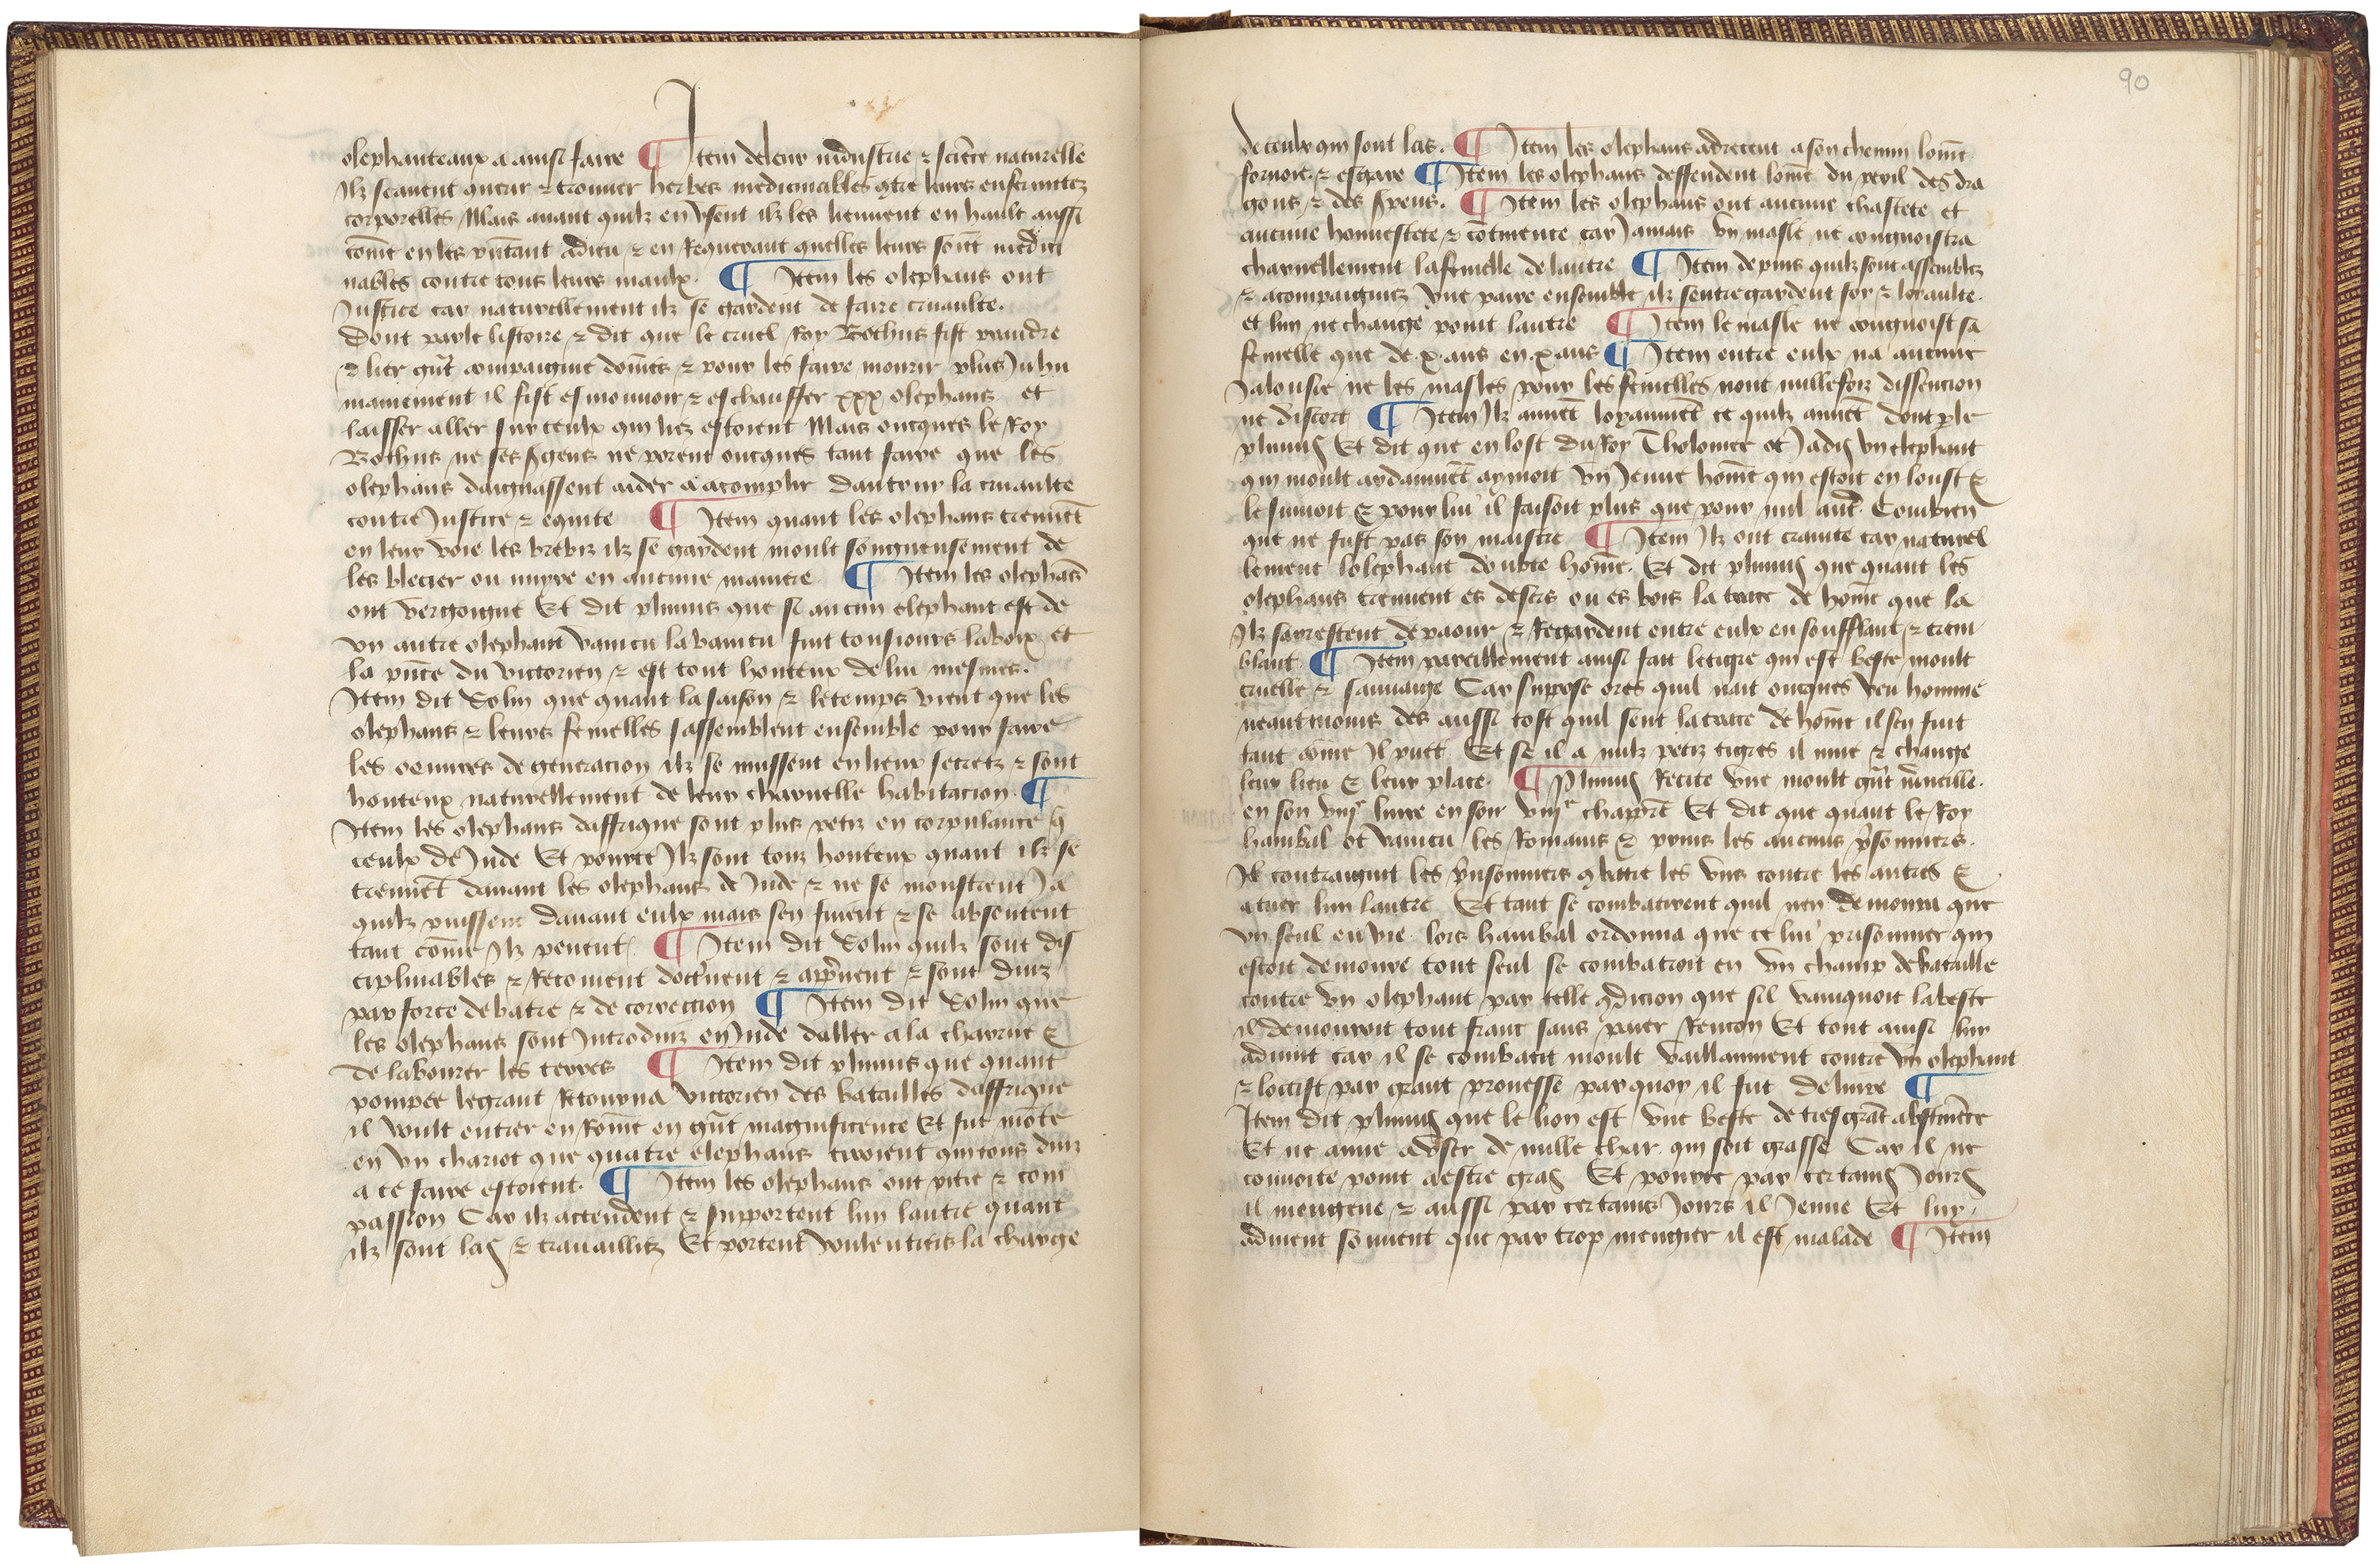 olephanteaux a ainsi faire ¶ Item de leur industrie ⁊ sciēce naturelle
Ilz scauent querir ⁊ trouuer herbes medicinalles ꝯtre leurs enfermitez
corporelles Mais auant quilz en vsent ilz les lieuent en hault aussi
cōme en les pn̄tant a dieu ⁊ en Requerant quelles leurs soiēt medici
nables contre tous leurs maulx. ¶ Item les olephans ont
Justice car naturellement ilz se gardent de faire cruaulte.
Dont parle listoire ⁊ dit que le cruel Roy Bochus fist prandre
⁊ lier gr̄t compaignie dōmes ⁊ pour les faire mourir plus Inhu
mainement il fist esmouuoir ⁊ eschauffer xxx olephans et
laisser aller sur ceulx qui liez estoient Mais oncques le Roy
Bochus ne ses gens ne porent oncques tant faire que les
olephans daignassent aider a acomplir dautruy la cruaulte
contre Justice ⁊ equite ¶ Item quant les olephans treuuēt
en leur voie les brebiz ilz se gardent moult songneusement de
les blecier ou nuyre en aucune maniere. ¶ Item les olephās
ont vergoigne Et dit plinius que se aucun elephant est de
vn autre olephant vaincu la vaincu fuit tousiours la voix et
la pn̄ce du victorien ⁊ est tout honteux de lui mesmes.
Item dit Solin que quant la saison ⁊ le temps vient que les
olephans ⁊ leurs femelles sassemblent ensemble pour faire
les oeuures de generacion ilz se mussent en lieux secretz ⁊ sont
honteux naturellement de leur charnelle habitacion. ¶
Item les olephans daffrique sont plus petiz en corpulance q̄
ceulx de Inde Et pource Ilz sont touz honteux quant ilz se
treuuēt dauant les olephans de Inde ⁊ ne se monstrent Ja
quilz puissent dauant eulx mais sen fuient ⁊ se absentent
tant cōme Ilz peuent. ¶ Item dit Solin quilz sont dis
ciplinables ⁊ Recoiuent doct'nent ⁊ appr̄nent ⁊ sont duiz
par force de batre ⁊ de correction ¶ Item dit Solin que
les olephans sont Introduiz en Inde daller a la charrue ⁊
de labourer les terres ¶ Item dit plinius que quant
pompee le grant Retourna victorien des batailles daffrique
il voult entrer en Rōme en gr̄t magnificence Et fut mōte
en vn chariot que quatre elephans tiroient qui tous duiz
a ce faire estoient. ¶ Item les olephans ont pitie ⁊ com
passion Car ilz attendent ⁊ supportent lun lautre quant
ilz sont las ⁊ trauailliez Et portent voulentiers la charge
90
de ceulx qui sont las. ¶ Item les olephans adrecent a son chemin lōme
foruoie ⁊ esgare ¶ Item les olephans deffendent lōme du peril des dra
gons ⁊ des s̄pens. ¶ Item les olephans ont aucune chastete et
aucune honnestete ⁊ cōtinence car Jamais vn masle ne congnoistra
charnellement la femelle de lautre ¶ Item depuis quilz sont assemblez
⁊ acompaigniez vne paire ensemble ilz sentregardent foy ⁊ loyaulte.
et lun ne change point lautre ¶ Item le masle ne congnoist sa
femelle que de .x. ans en .x. ans ¶ Item entre eulx na aucune
Jalousie ne les masles pour les femelles nont nullefoiz dissencion
ne discort ¶ Item Ilz aiment loyaumēt ce quilz aimēt dont ꝑle
plinius Et dit que en lost du Roy Tholomee ot Jadis vn elephant
qui moult ardammēt aymoit vn Jeune hōme qui estoit en loust ⁊
le suiuoit ⁊ pour lui il faisoit plus que pour nul aut'. Combien
que ne fust pas son maistre ¶ Item Ilz ont crainte car naturel
lement lolephant doubte hōme. Et dit plinius que quant les
olephans treuuent es desers ou es bois la trace de hōme que la
Ilz sarrestent de paour ⁊ Regardent entre eulx en soufflant ⁊ trem
blant ¶ Item pareillement ainsi fait le tigre qui est beste moult
cruelle ⁊ sauuaige Car suppose ores quil nait oncques veu homme
neantmoins des aussi tost quil sent la trace de hōme il sen fuit
tant cōme Il puet Et se il a nulz petiz tigres il mue ⁊ change
leur lieu ⁊ leur place. ¶ Plinius Recite vne moult gr̄t m̄ueille.
en son viijᵉ liure en son viijᵉ chapītre Et dit que quant le Roy
hanibal ot vaincu les Romains ⁊ prins les aucuns p̄sonniers.
Il contraignit les pr̄isonniers ꝯbatre les vns contre les autres ⁊
a tuer lun lautre Et tant se combatirent quil nen demoura que
vn seul en vie. lors hanibal ordonna que ce lui prisonnier qui
estoit demoure tout seul se combatroit en vn champ de bataille
contre vn olephant par telle ꝯdicion que sil vainquoit la beste
il demourroit tout franc sans paier Rencon Et tout ainsi luy
aduint car il se combatit moult vaillamment contre vn olephant
⁊ loccist par grant prouesse par quoy il fut deliure ¶
Item dit plinius que le lion est vne beste de tresgrāt abstinēce
Et ne aime a vser de nulle char qui soit grasse Car il ne
conuoite point a estre gras Et pource par certains Jours
il mengeue ⁊ aussi par certains Jours il Jeune Et luy
aduient souuent que par trop mengier il est malade ¶ Item